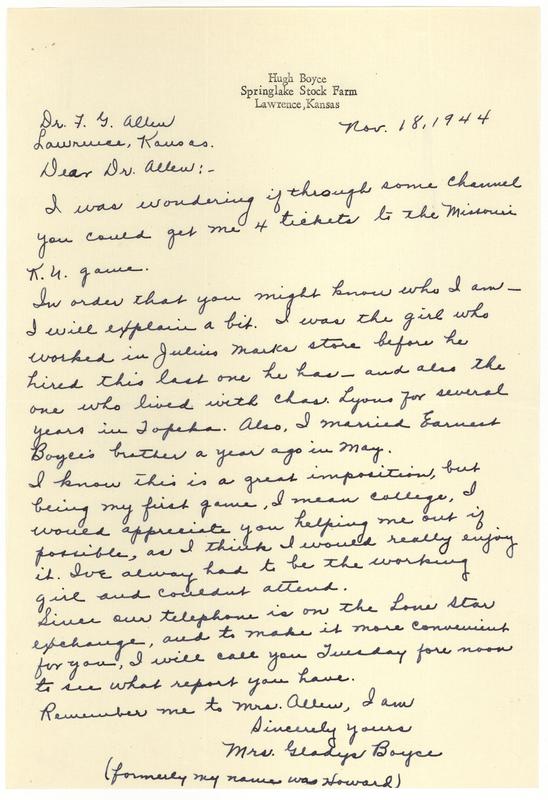 Hugh Boyce
Springlake Stock Farm
Lawrence, Kansas
Nov. 18, 1944
Dr. F. G. Allen
Lawrence, Kansas.
Dear Dr. Allen:-
I was wondering if through some channel
you could get me 4 tickets to the Missouri
K.U. game.
In order that you might know who I am—
I will explain a bit. I was the girl who
worked in Julius Marks store before he
hired this last one he has — and also the
one who lived with Chas. Lyons for several
years in Topeka. Also, I married Earnest
Boyce's brother a year ago in May.
I know this is a great imposition, but
being my first game, I mean college, I
would appreciate you helping me out if
possible, as I think I would really enjoy
it. I've alway had to be the working
girl and couldnt attend.
Since our telephone is on the Lone Star
exchange, and to make it more convenient
for you, I will call you Tuesday fore noon
to see what report you have.
Remember me to Mrs. Allen, I am
Sincerely yours
Mrs. Gladys Boyce
(formerly my name was Howard)